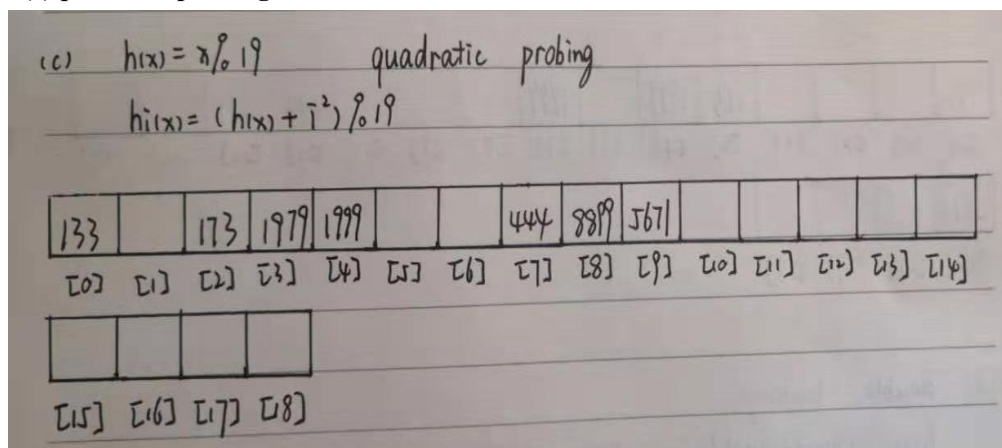 (c) h(x) = x % 19 quadratic probing
hi(x) = (h(x) + i²) % 19
133 173 1979 1999 444 8899 5671
[0] [1] [2] [3] [4] [5] [6] [7] [8] [9] [10] [11] [12] [13] [14]
[15] [16] [17] [18]